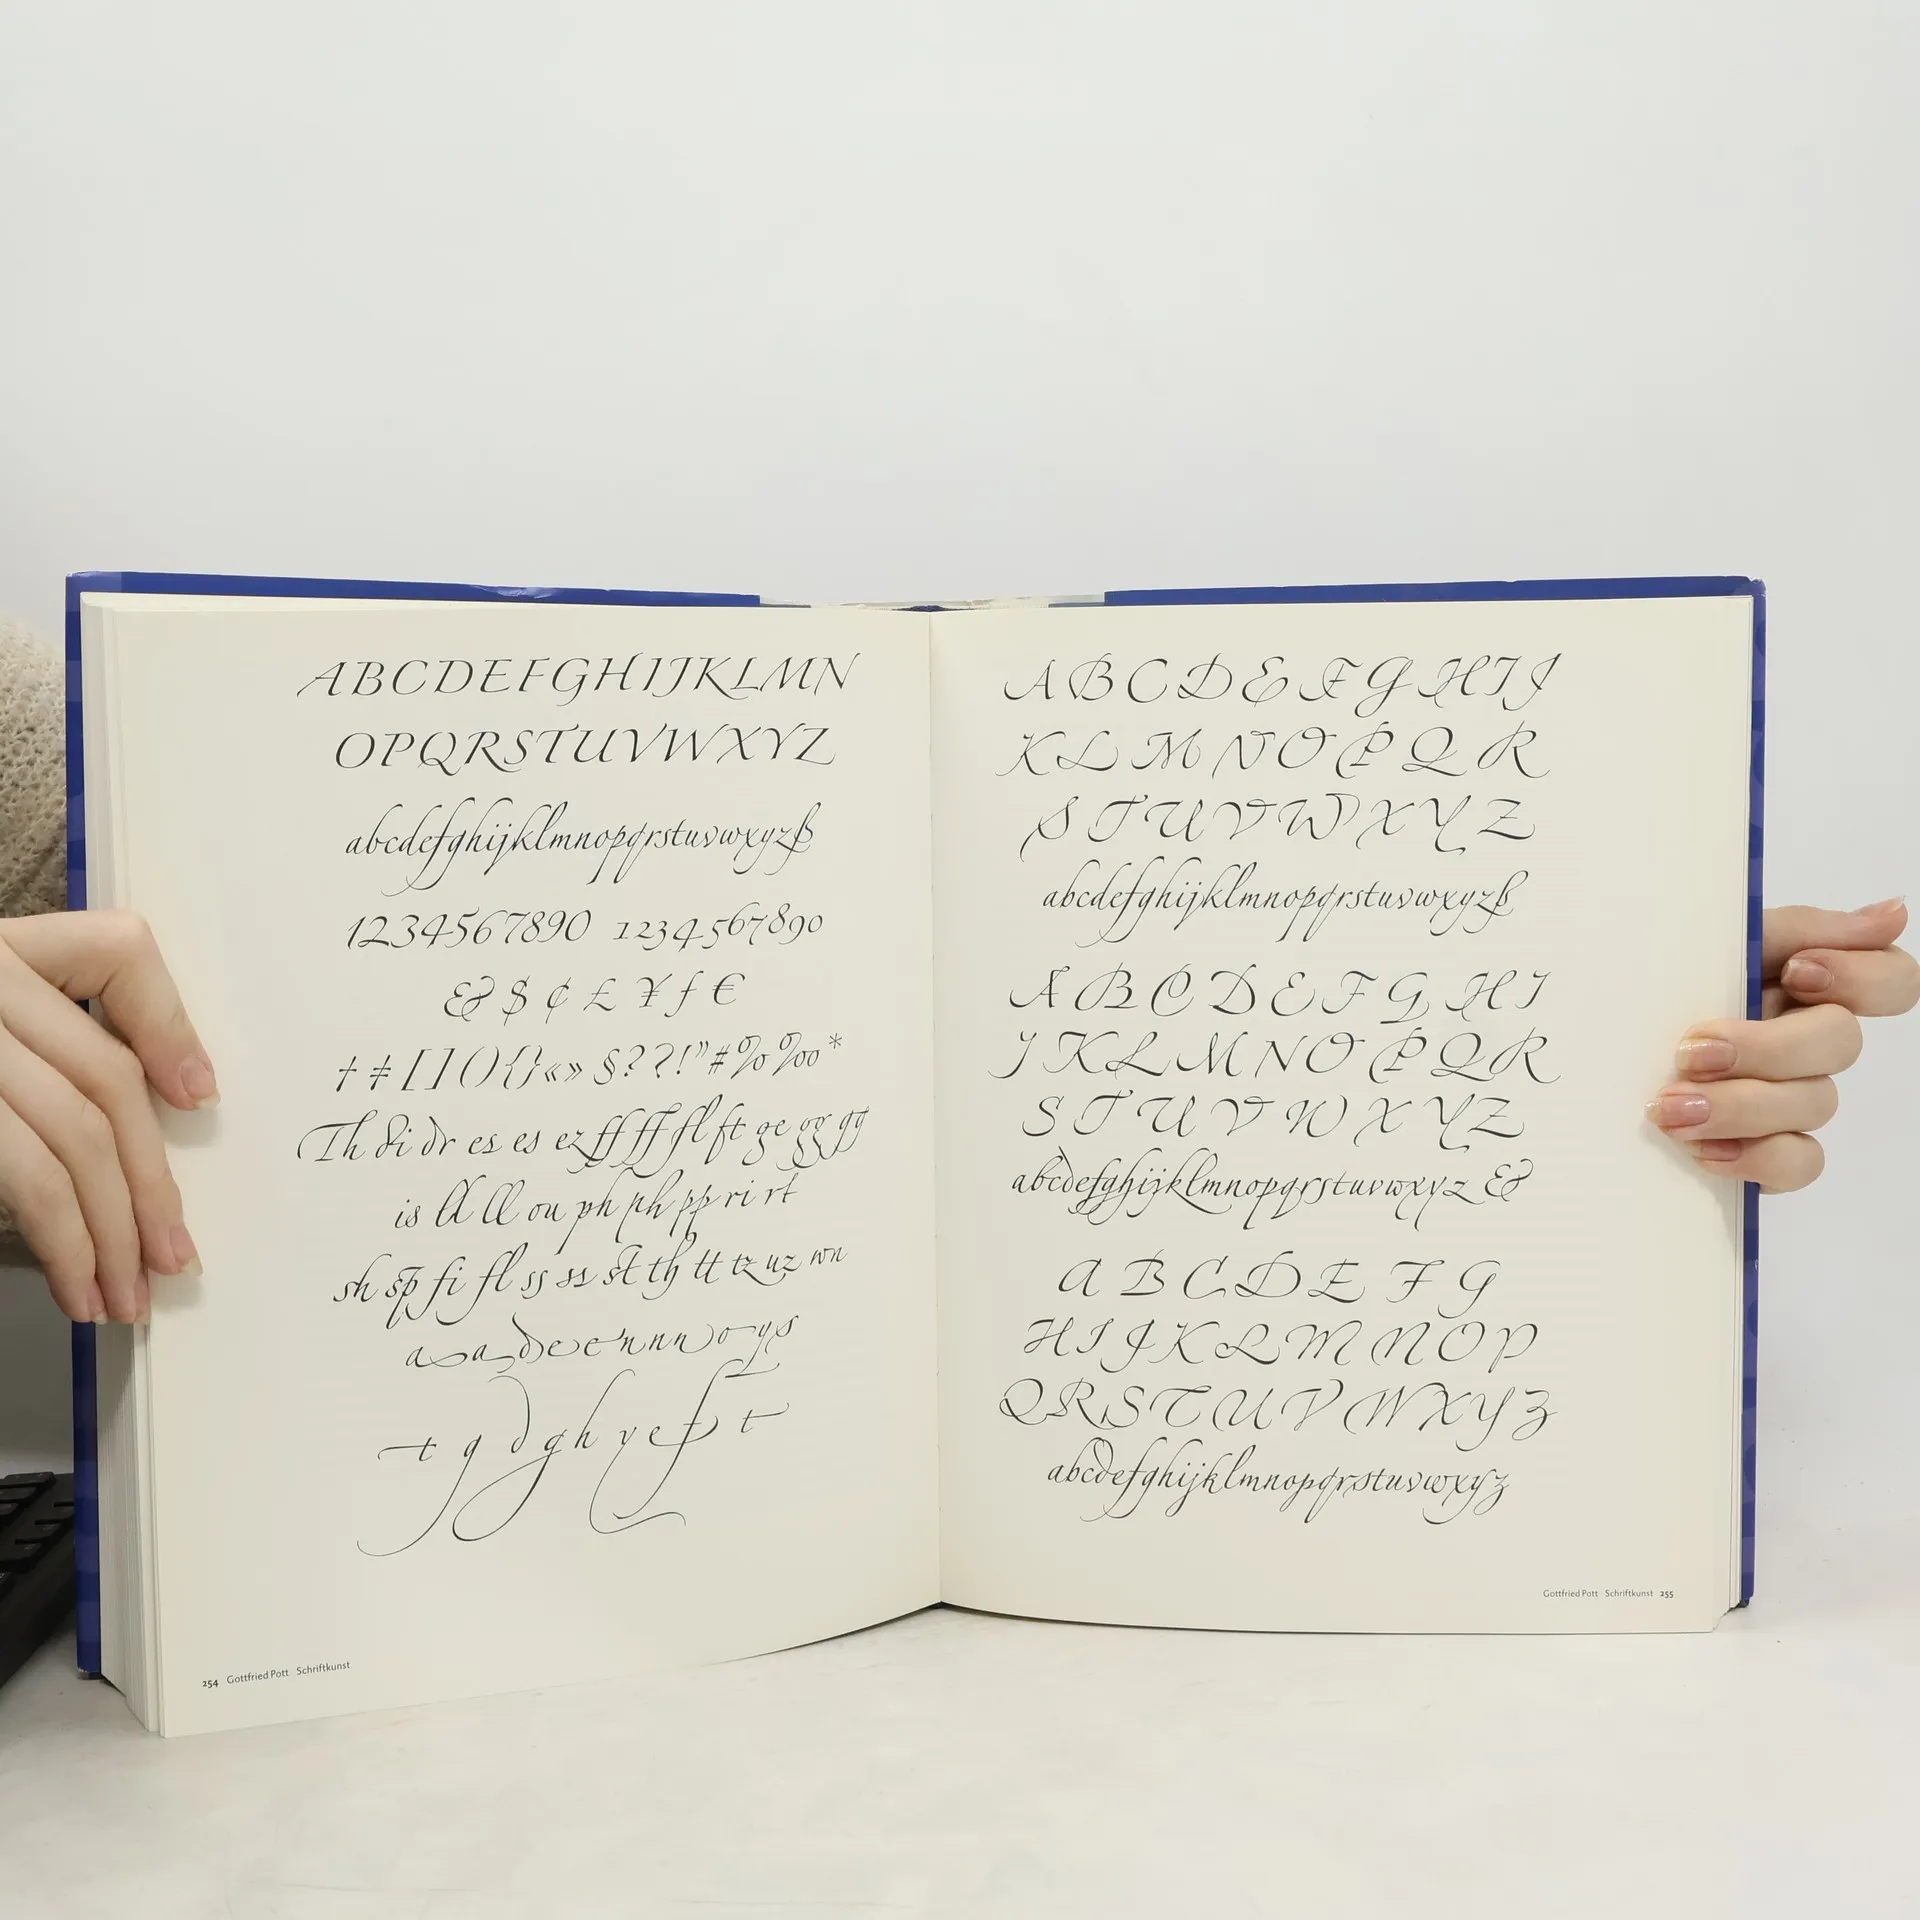 ABCDEFGHIJKLMN
OPQRSTUVWXYZ
abcdefghijklmnopqrstuvwxyzß
1234567890 1234567890
& $ ¢ £ ¥ ƒ €
† ‡ [ ] ( ) { } « » § ? ? ! ” # % ‰ *
Th di dr es es ez ff ff fl ft ge gg gg
is ll ll ou ph ph pp ri rt
sh sp fi fl ss ss st th tt tz uz wn
a a d e e n n n o y s
t g d g h y e f t
254 Gottfried Pott Schriftkunst
A B C D E F G H I J
K L M N O P Q R
S T U V W X Y Z
abcdefghijklmnopqrstuvwxyzß
A B C D E F G H I
J K L M N O P Q R
S T U V W X Y Z
abcdefghijklmnopqrstuvwxyz &
A B C D E F G
H I J K L M N O P
Q R S T U V W X Y Z
abcdefghijklmnopqrstuvwxyz
Gottfried Pott Schriftkunst 255